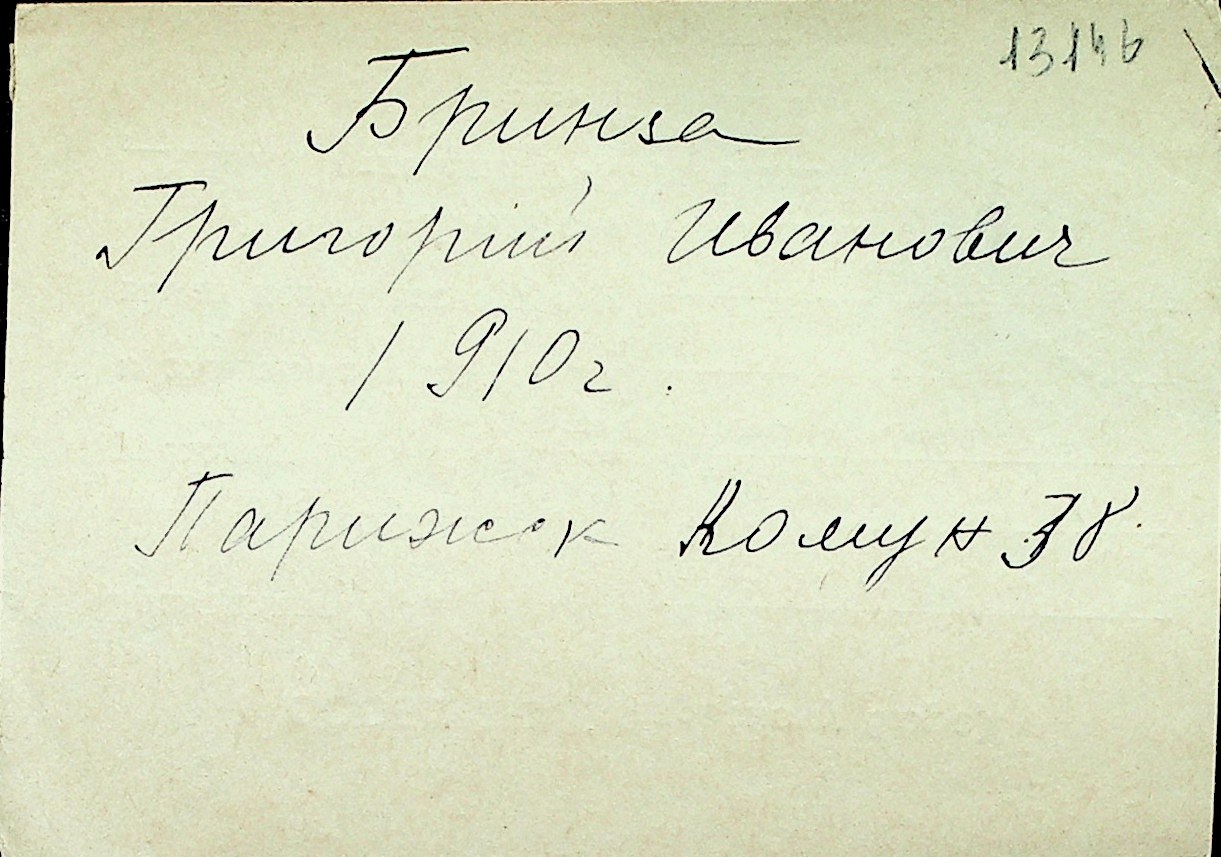 13146
Бринза
Григорий Иванович
1910г.
Парижск Комун 38